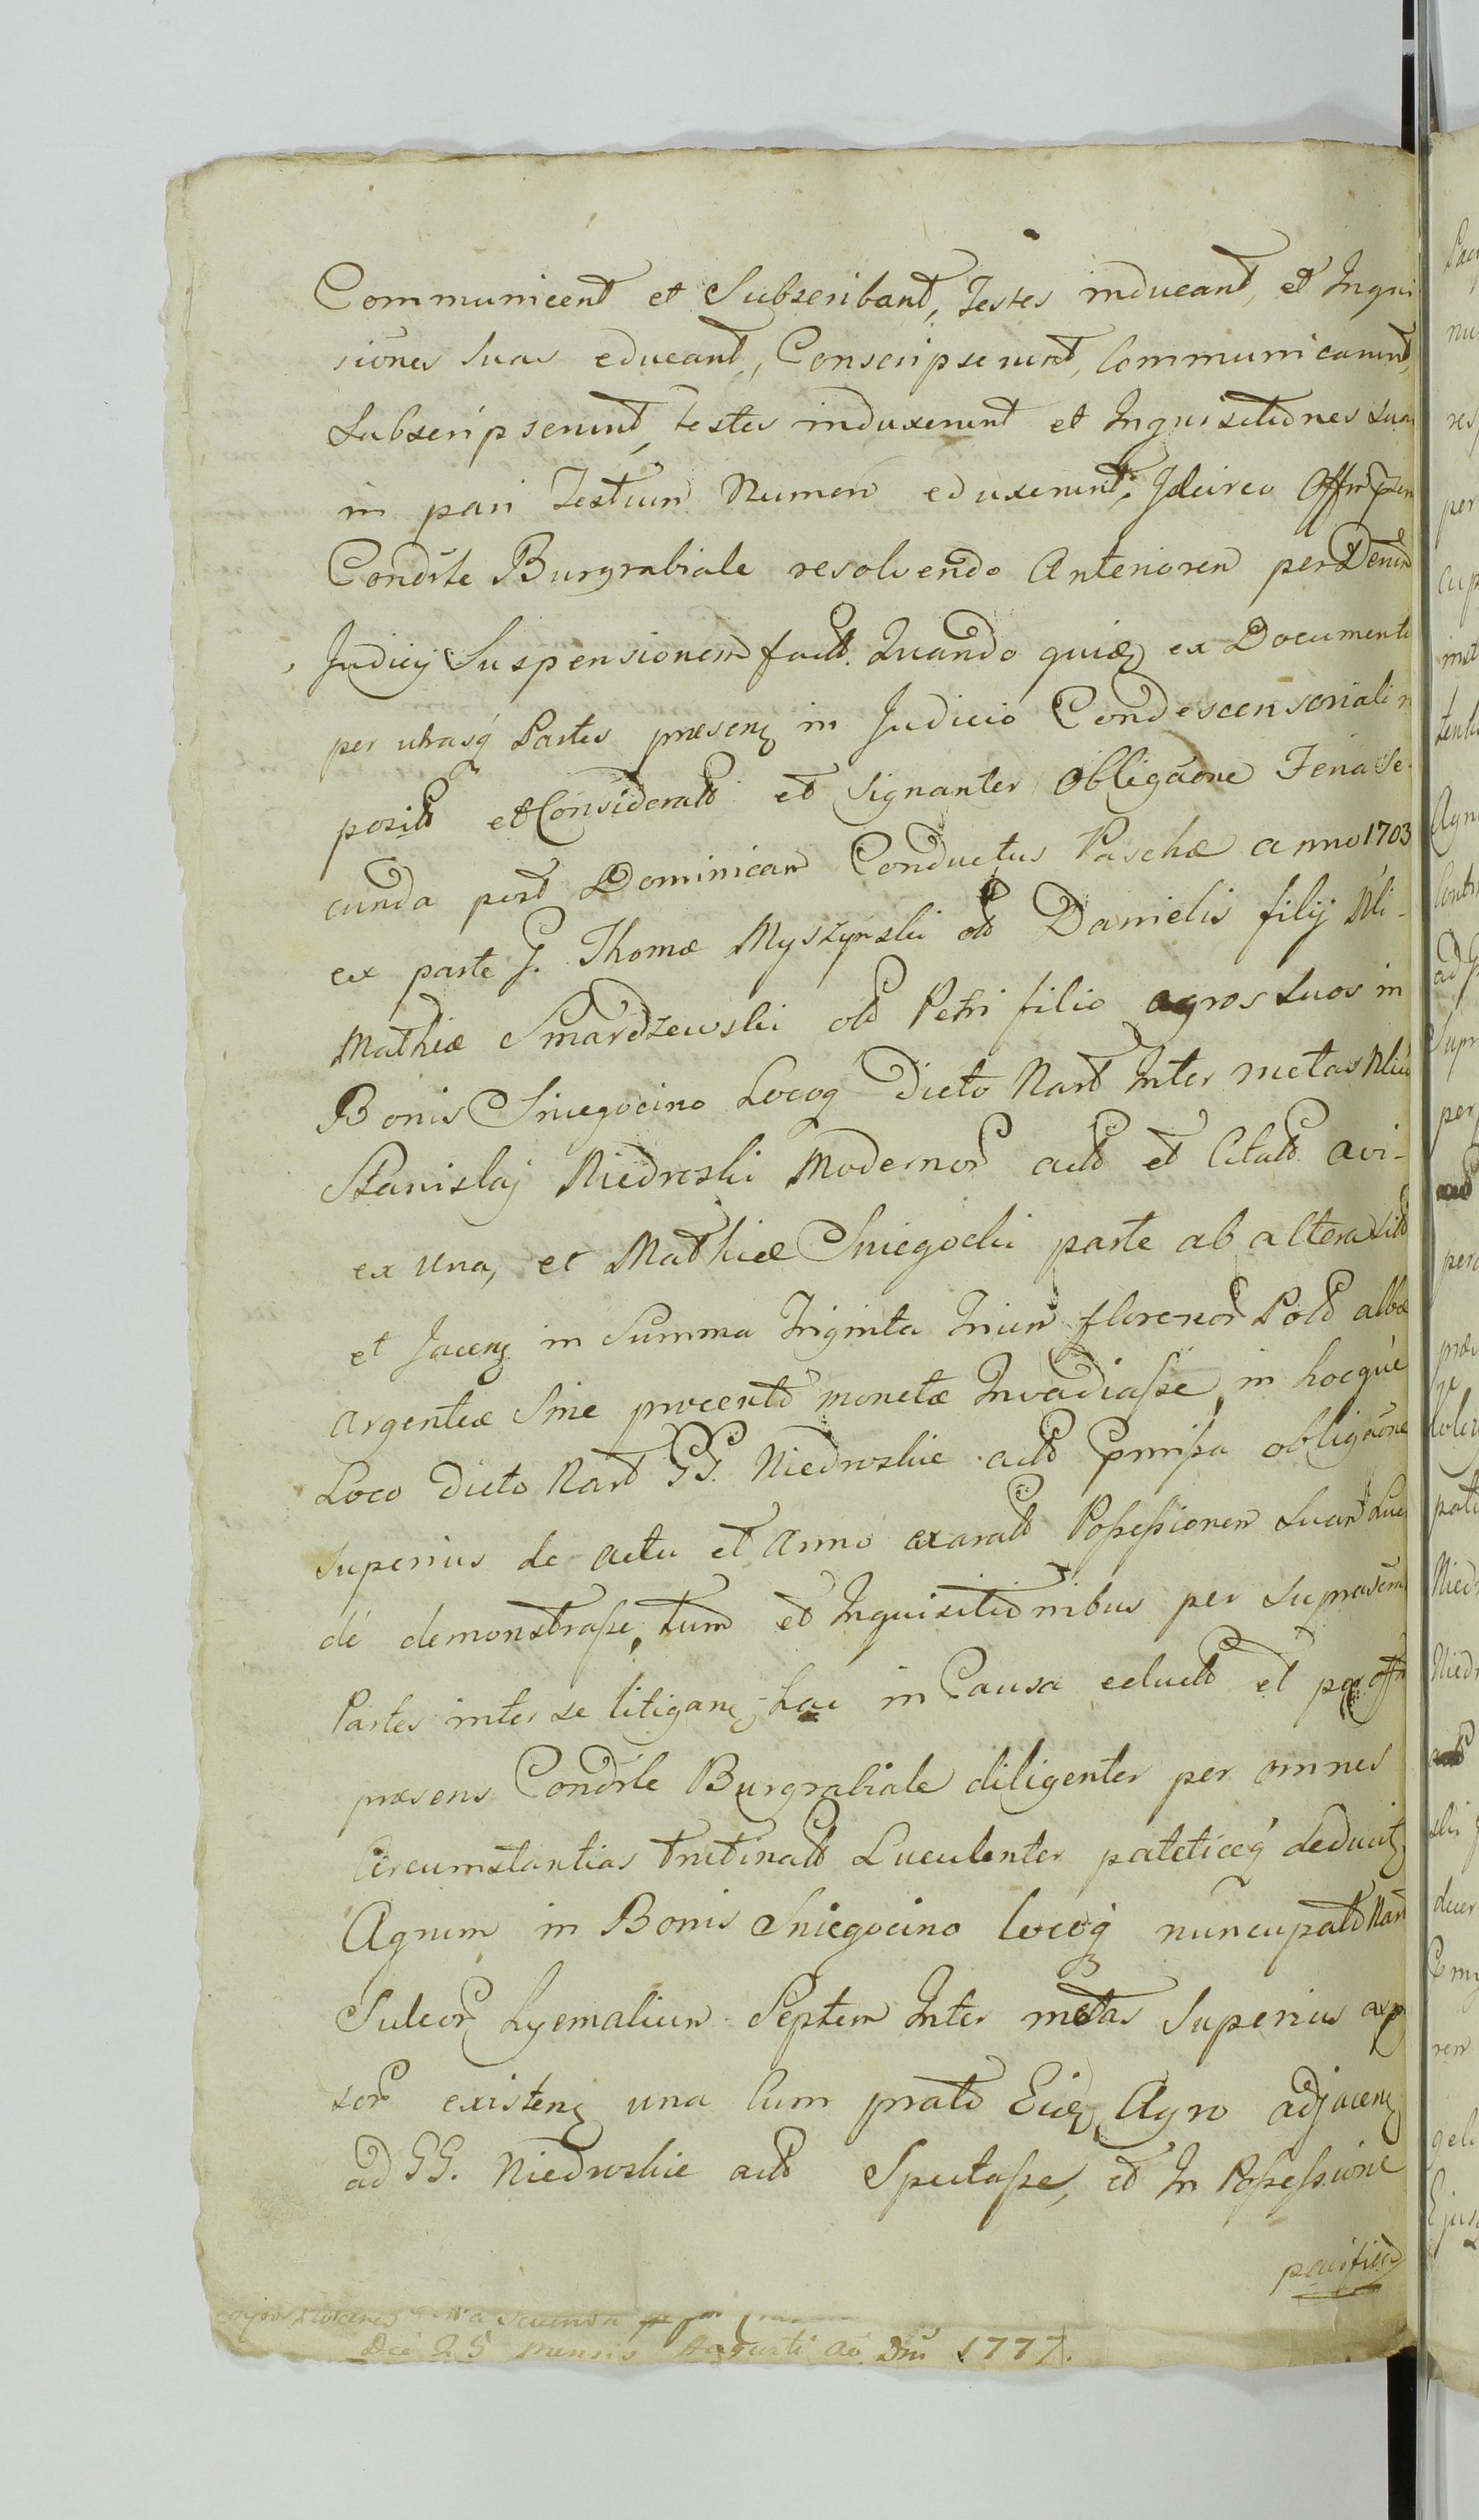 Communicent et Subscribant, Testes inducant, et Inqui
siones suas educant, Conscripserunt, Communicarunt,
Subscripserunt, testes induxerunt et Inquisitiones suas
in pari Testium Numero eduxerunt; Idcirco Offm psen
Condrle Burgrabiale resolvendo Anteriorem per Denm
Judicij Suspensionem fact. Quando quidq ex Documentis
per utrasq Partes praesenq in Judicio Condescensoriali
posit et Considerat et signanter Obligaone Feria Se-
cunda post Dominicam Conductus Paschae anno 1703
ex parte G. Thomae Myszynski olt Danielis filij Nli-
Mathiae Smardzewski olt Petri filio agros suos in
Bonis Sniegocino Locoq Dicto Nart Inter metas Nliu
Stanislaj Niedroski Modernor act et Citat avi-
ex una, et Mathiae Sniegocki parte ab altera sit
et Jacenq in Summa Triginta Trium florenor Pol albae
argenteae Sine procento monetae Invadiasse, in hocque
Loco Dicto Nart GG. Niedroskie act Pmissa obligaone
superius de actu et anno exarat Possessionem Suam Luci
de demonstrasse, tum et Inquisitionibus per Suprascrip
Partes inter se litiganq hac in Causa educt et per offm
praesens Condrle Burgrabiale diligenter per omnes
Circumstantias trutinat Luculenter pateticeq deducit
Agrum in Bonis Sniegocino locoq nuncupat Nart
Sulcor hyemalium Septem Inter metas Superius exp
sor existenq una Cum prato Eidq Agro adjacenq
ad GG. Niedroskie act Spectasse, et In Possessione
pacifica
Die 25 mensis Augusti Ao Dni 1777.